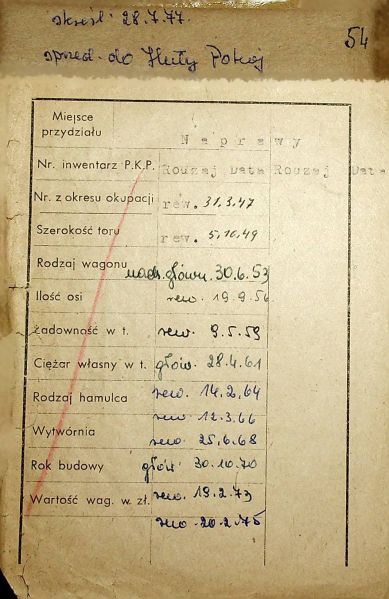 skreśl. 28.7.77.
54
sprzed. do Huty Pokój
Miejsce
przydziału
Naprawy
Nr. inwentarz P.K.P. Rodzaj Data Rodzaj Data
Nr. z okresu okupacji rew. 31.3.47
Szerokość toru rew. 5.10.49
Rodzaj wagonu nadz. główn. 30.6.53
Ilość osi rew. 19.9.56
Ładowność w t. rew. 9.5.59
Ciężar własny w t. głów. 28.4.61
Rodzaj hamulca rew. 14.2.64
rew. 12.3.66
Wytwórnia rew. 25.6.68
Rok budowy głów. 30.10.70
Wartość wag. w zł. rew. 19.2.73
rew. 20.2.75